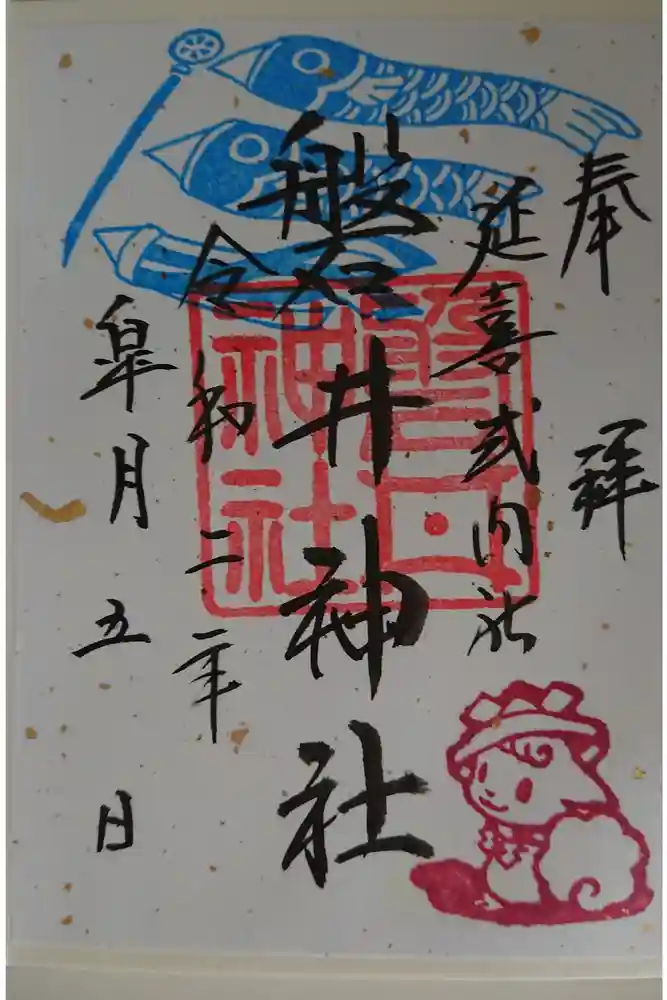 奉拜
延喜式内社
磐井神社
令和二年
皐月五日
磐井
神社